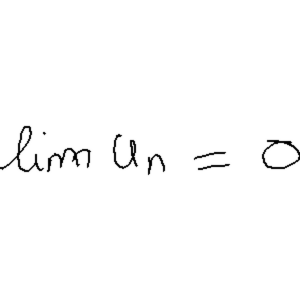 lim u_n = 0